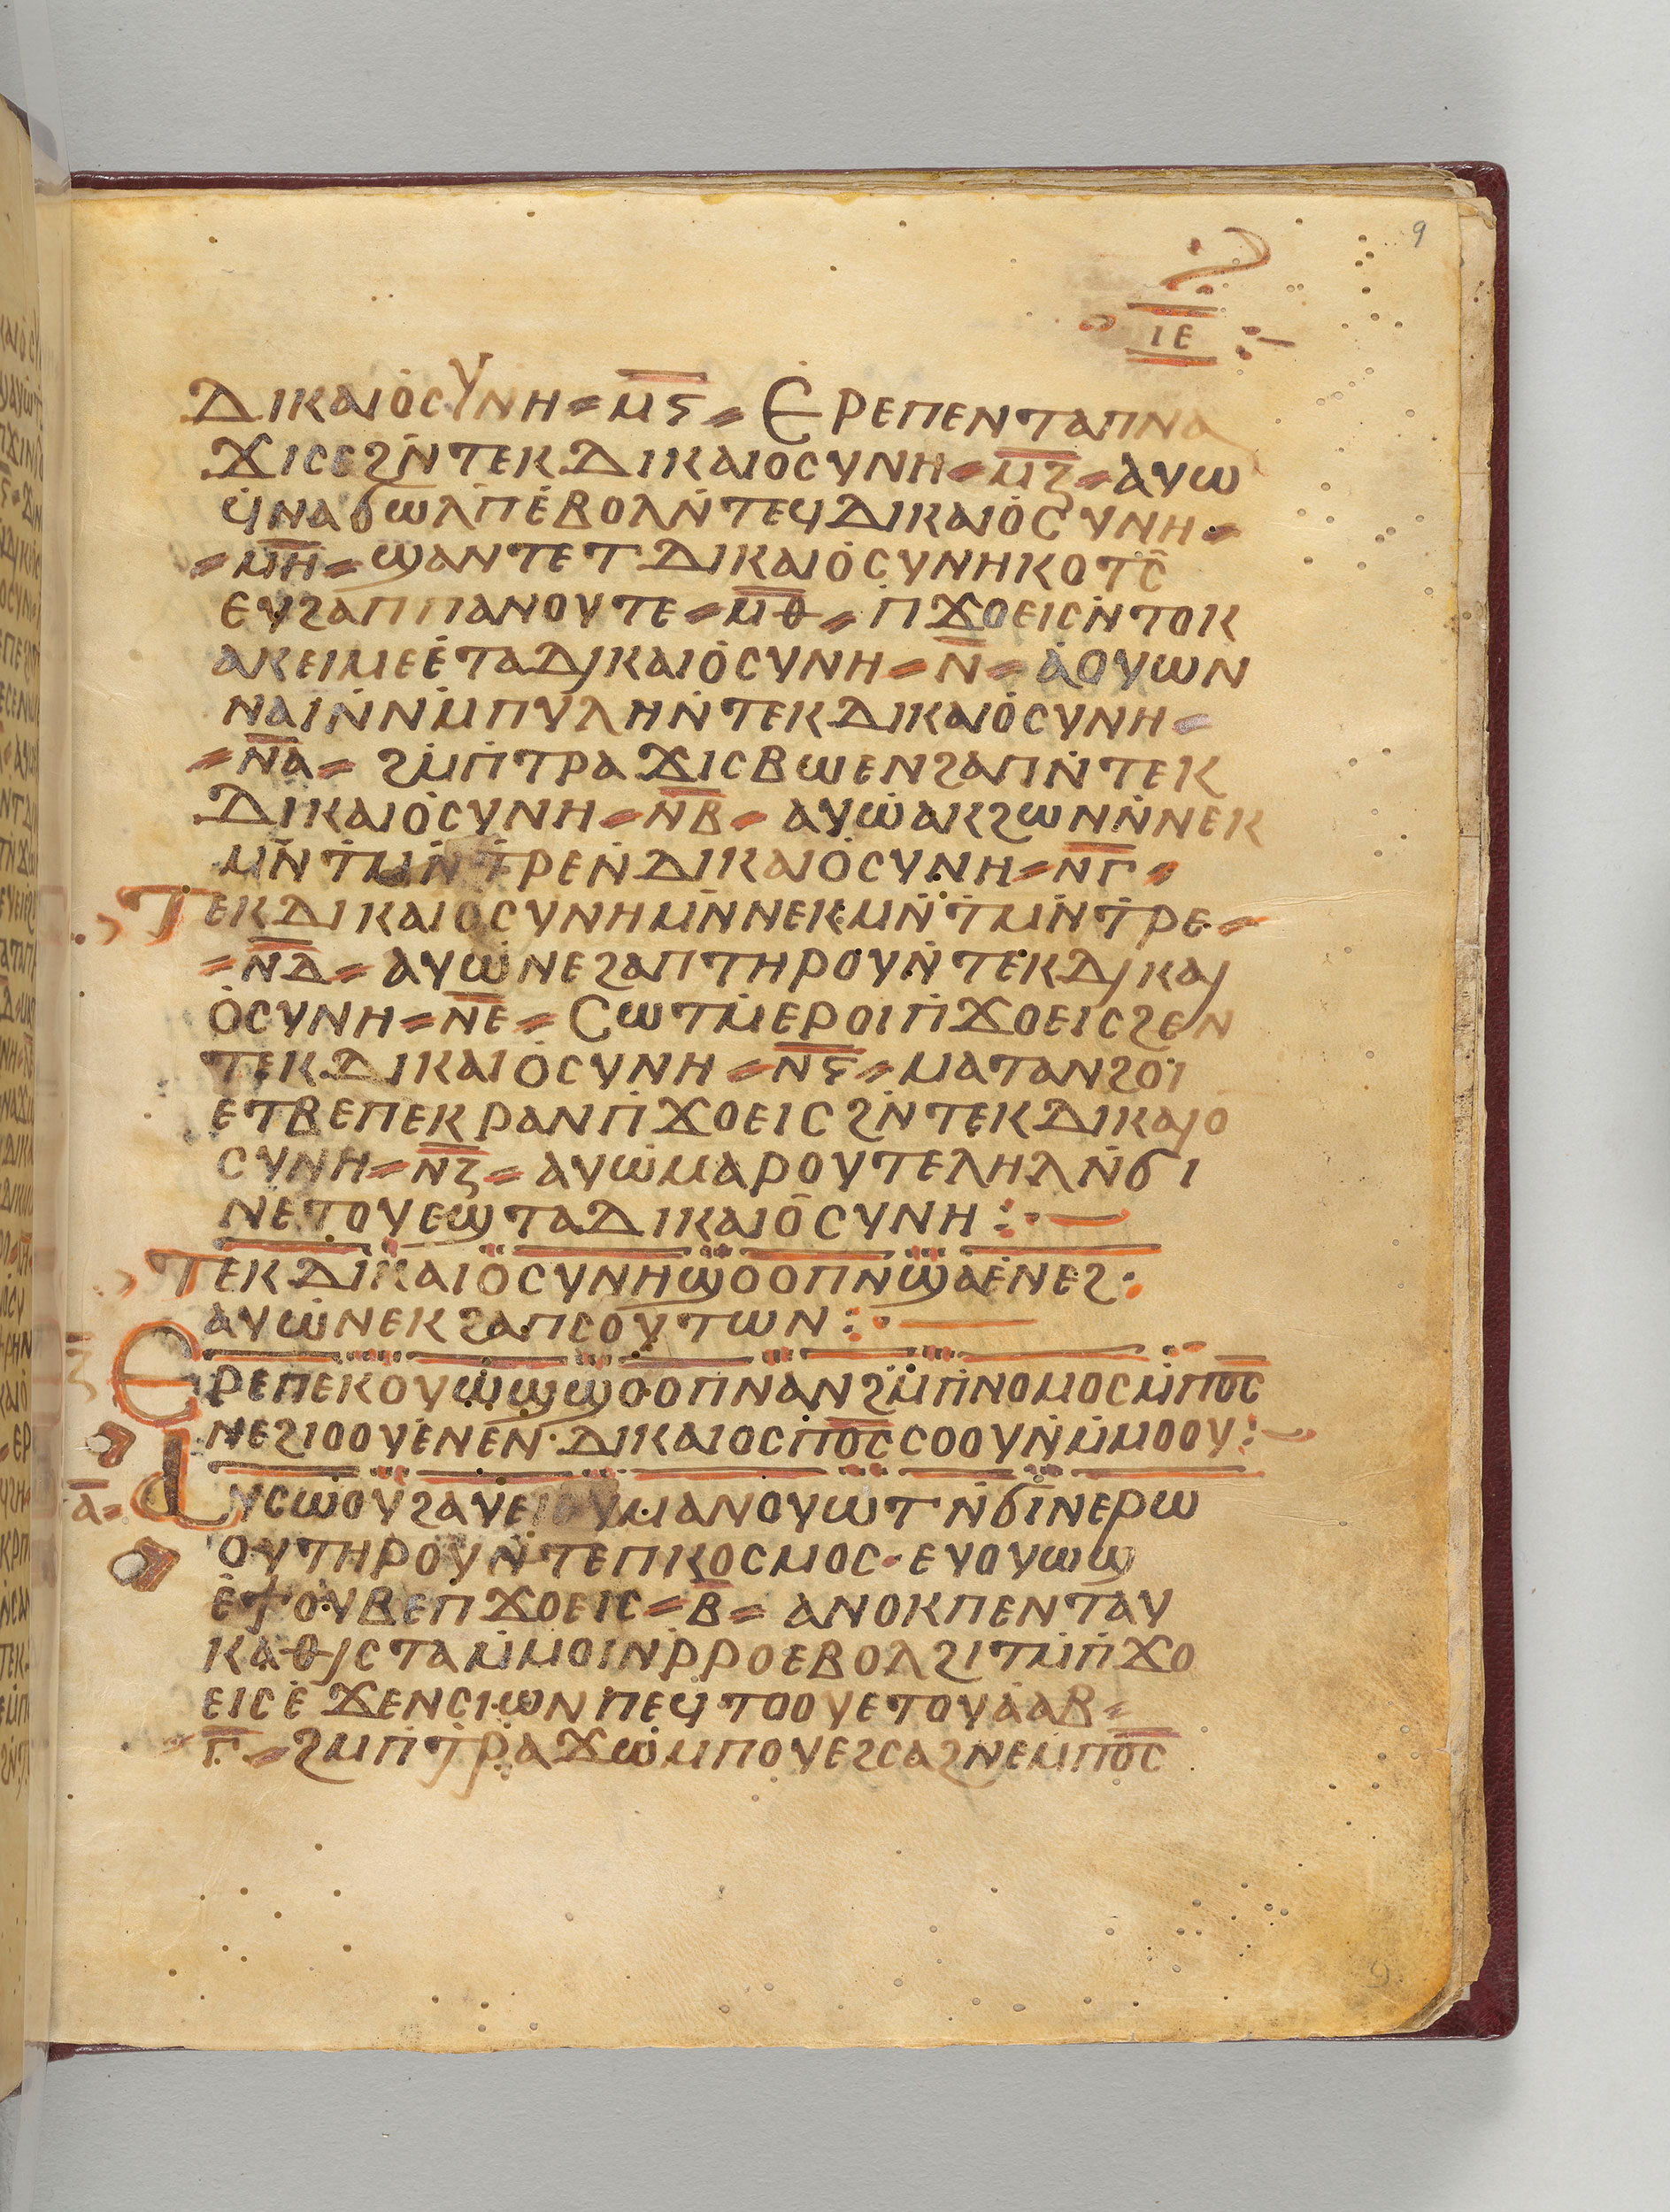 9
ⲒⲈ
ⲆⲒⲔⲀⲒⲞⲤⲨⲚⲎ = ⲘⲊ̅ = ⲈⲢⲈⲠⲈⲚⲦⲀⲠⲚⲀ
ϪⲒⲤⲈϨⲚ̇ⲦⲈⲔⲆⲒⲔⲀⲒⲞⲤⲨⲚⲎ = ⲘⲌ̅ = ⲀⲨⲰ
ϤⲚⲀϬⲰⲖⲠ̇ⲈⲂⲞⲖⲚ̇ⲦⲈϤⲆⲒⲔⲀⲒⲞⲤⲨⲚⲎ =
= ⲘⲎ̅ = ϢⲀⲚⲦⲈⲦⲆⲒⲔⲀⲒⲞⲤⲨⲚⲎⲔⲞⲦⲤ̄
ⲈⲨϨⲀⲠⲠⲀⲚⲞⲨⲦⲈ = ⲘⲐ̅ = Ⲡ̇ϪⲞⲈⲒⲤⲚ̇ⲦⲞⲔ
ⲀⲔⲈⲒⲘⲈⲈ̇ⲦⲀⲆⲒⲔⲀⲒⲞⲤⲨⲚⲎ = Ⲛ̅ = ⲀⲞⲨⲰⲚ
ⲚⲀⲒⲚ̇ⲚⲘ̇ⲠⲨⲖⲎⲚ̇ⲦⲈⲔⲆⲒⲔⲀⲒⲞⲤⲨⲚⲎ =
= ⲚⲀ̅ = ϨⲘ̇Ⲡ̇ⲦⲢⲀϪⲒⲤⲂⲰⲈⲚϨⲀⲠⲚ̇ⲦⲈⲔ
ⲆⲒⲔⲀⲒⲞⲤⲨⲚⲎ = ⲚⲂ̅ = ⲀⲨⲰⲀⲔϨⲰⲚⲚ̇ⲚⲈⲔ
ⲘⲚ̇ⲦⲘⲚ̇ⲦⲢⲈⲚ̇ⲆⲒⲔⲀⲒⲞⲤⲨⲚⲎ = ⲚⲄ̅ =
ⲦⲈⲔⲆⲒⲔⲀⲒⲞⲤⲨⲚⲎⲘⲚ̇ⲚⲈⲔⲘⲚ̇ⲦⲘⲚ̇ⲦⲢⲈ =
= ⲚⲆ̅ = ⲀⲨⲰⲚⲈϨⲀⲠⲦⲎⲢⲞⲨⲚ̇ⲦⲈⲔⲆⲒⲔⲀⲒ
ⲞⲤⲨⲚⲎ = ⲚⲈ̅ = ⲤⲰⲦⲘ̇ⲈⲢⲞⲒⲠ̇ϪⲞⲈⲒⲤϨⲈⲚ
ⲦⲈⲔⲆⲒⲔⲀⲒⲞⲤⲨⲚⲎ = ⲚⲊ̅ = ⲘⲀⲦⲀⲚϨⲞⲒ̈
ⲈⲦⲂⲈⲠⲈⲔⲢⲀⲚⲠ̇ϪⲞⲈⲒⲤϨⲚ̇ⲦⲈⲔⲆⲒⲔⲀⲒⲞ
ⲤⲨⲚⲎ = ⲚⲌ̅ = ⲀⲨⲰⲘⲀⲢⲞⲨⲦⲈⲖⲎⲖⲚ̇ϬⲒ
ⲚⲈⲦⲞⲨⲈϢⲦⲀⲆⲒⲔⲀⲒⲞⲤⲨⲚⲎ :·—
ⲦⲈⲔⲆⲒⲔⲀⲒⲞⲤⲨⲚⲎϢⲞⲞⲠⲚϢⲀⲈ̇ⲚⲈϨ·
ⲀⲨⲰⲚⲈⲔϨⲀⲠⲤⲞⲨⲦⲰⲚ :·—
ⲈⲢⲈⲠⲈⲔⲞⲨⲰϢϢⲞⲞⲠⲚⲀⲚϨⲘ̇Ⲡ̇ⲚⲞⲘⲞⲤⲘ̇ⲠⲞ̅Ⲥ̅
ⲚⲈϨⲒⲞⲟⲨⲈ̇ⲚⲈⲚ̇·ⲆⲒⲔⲀⲒⲞⲤⲠⲞ̅Ⲥ̅ⲤⲞⲞⲨⲚⲘ̇ⲘⲞⲞⲨ :—
Ⲁ̅ = ⲀⲨⲤⲰⲞⲨϨⲀⲨⲈⲒⲞⲨⲘⲀⲚⲞⲨⲰⲦⲚ̇ϬⲒⲚⲈⲢⲰ
ⲞⲨⲦⲎⲢⲞⲨⲚ̇ⲦⲈⲠⲔⲞⲤⲘⲞⲤ·ⲈⲨⲞⲨⲰϢ
Ⲉ̇ϮⲞⲨⲂⲈⲠϪⲞⲈⲒⲤ = Ⲃ̅ = ⲀⲚⲞⲔⲠⲈⲚⲦⲀⲨ
ⲔⲀⲐⲒⲤⲦⲀⲘ̇ⲘⲞⲒⲚ̇ⲢⲢⲞⲈⲂⲞⲖϨⲒⲦⲘ̇Ⲡ̇ϪⲞ
ⲈⲒⲤⲈ̇ϪⲈⲚⲤⲒⲰⲚⲠⲈϤⲦⲞⲞⲨⲈⲦⲞⲨⲀⲀⲂ =
Ⲅ̅ = ϨⲘⲠ̇ⲦⲢⲀϪⲰⲘ̇ⲠⲞⲨⲈϨⲤⲀϨⲚⲈⲘ̇ⲠⲞ̅Ⲥ̅